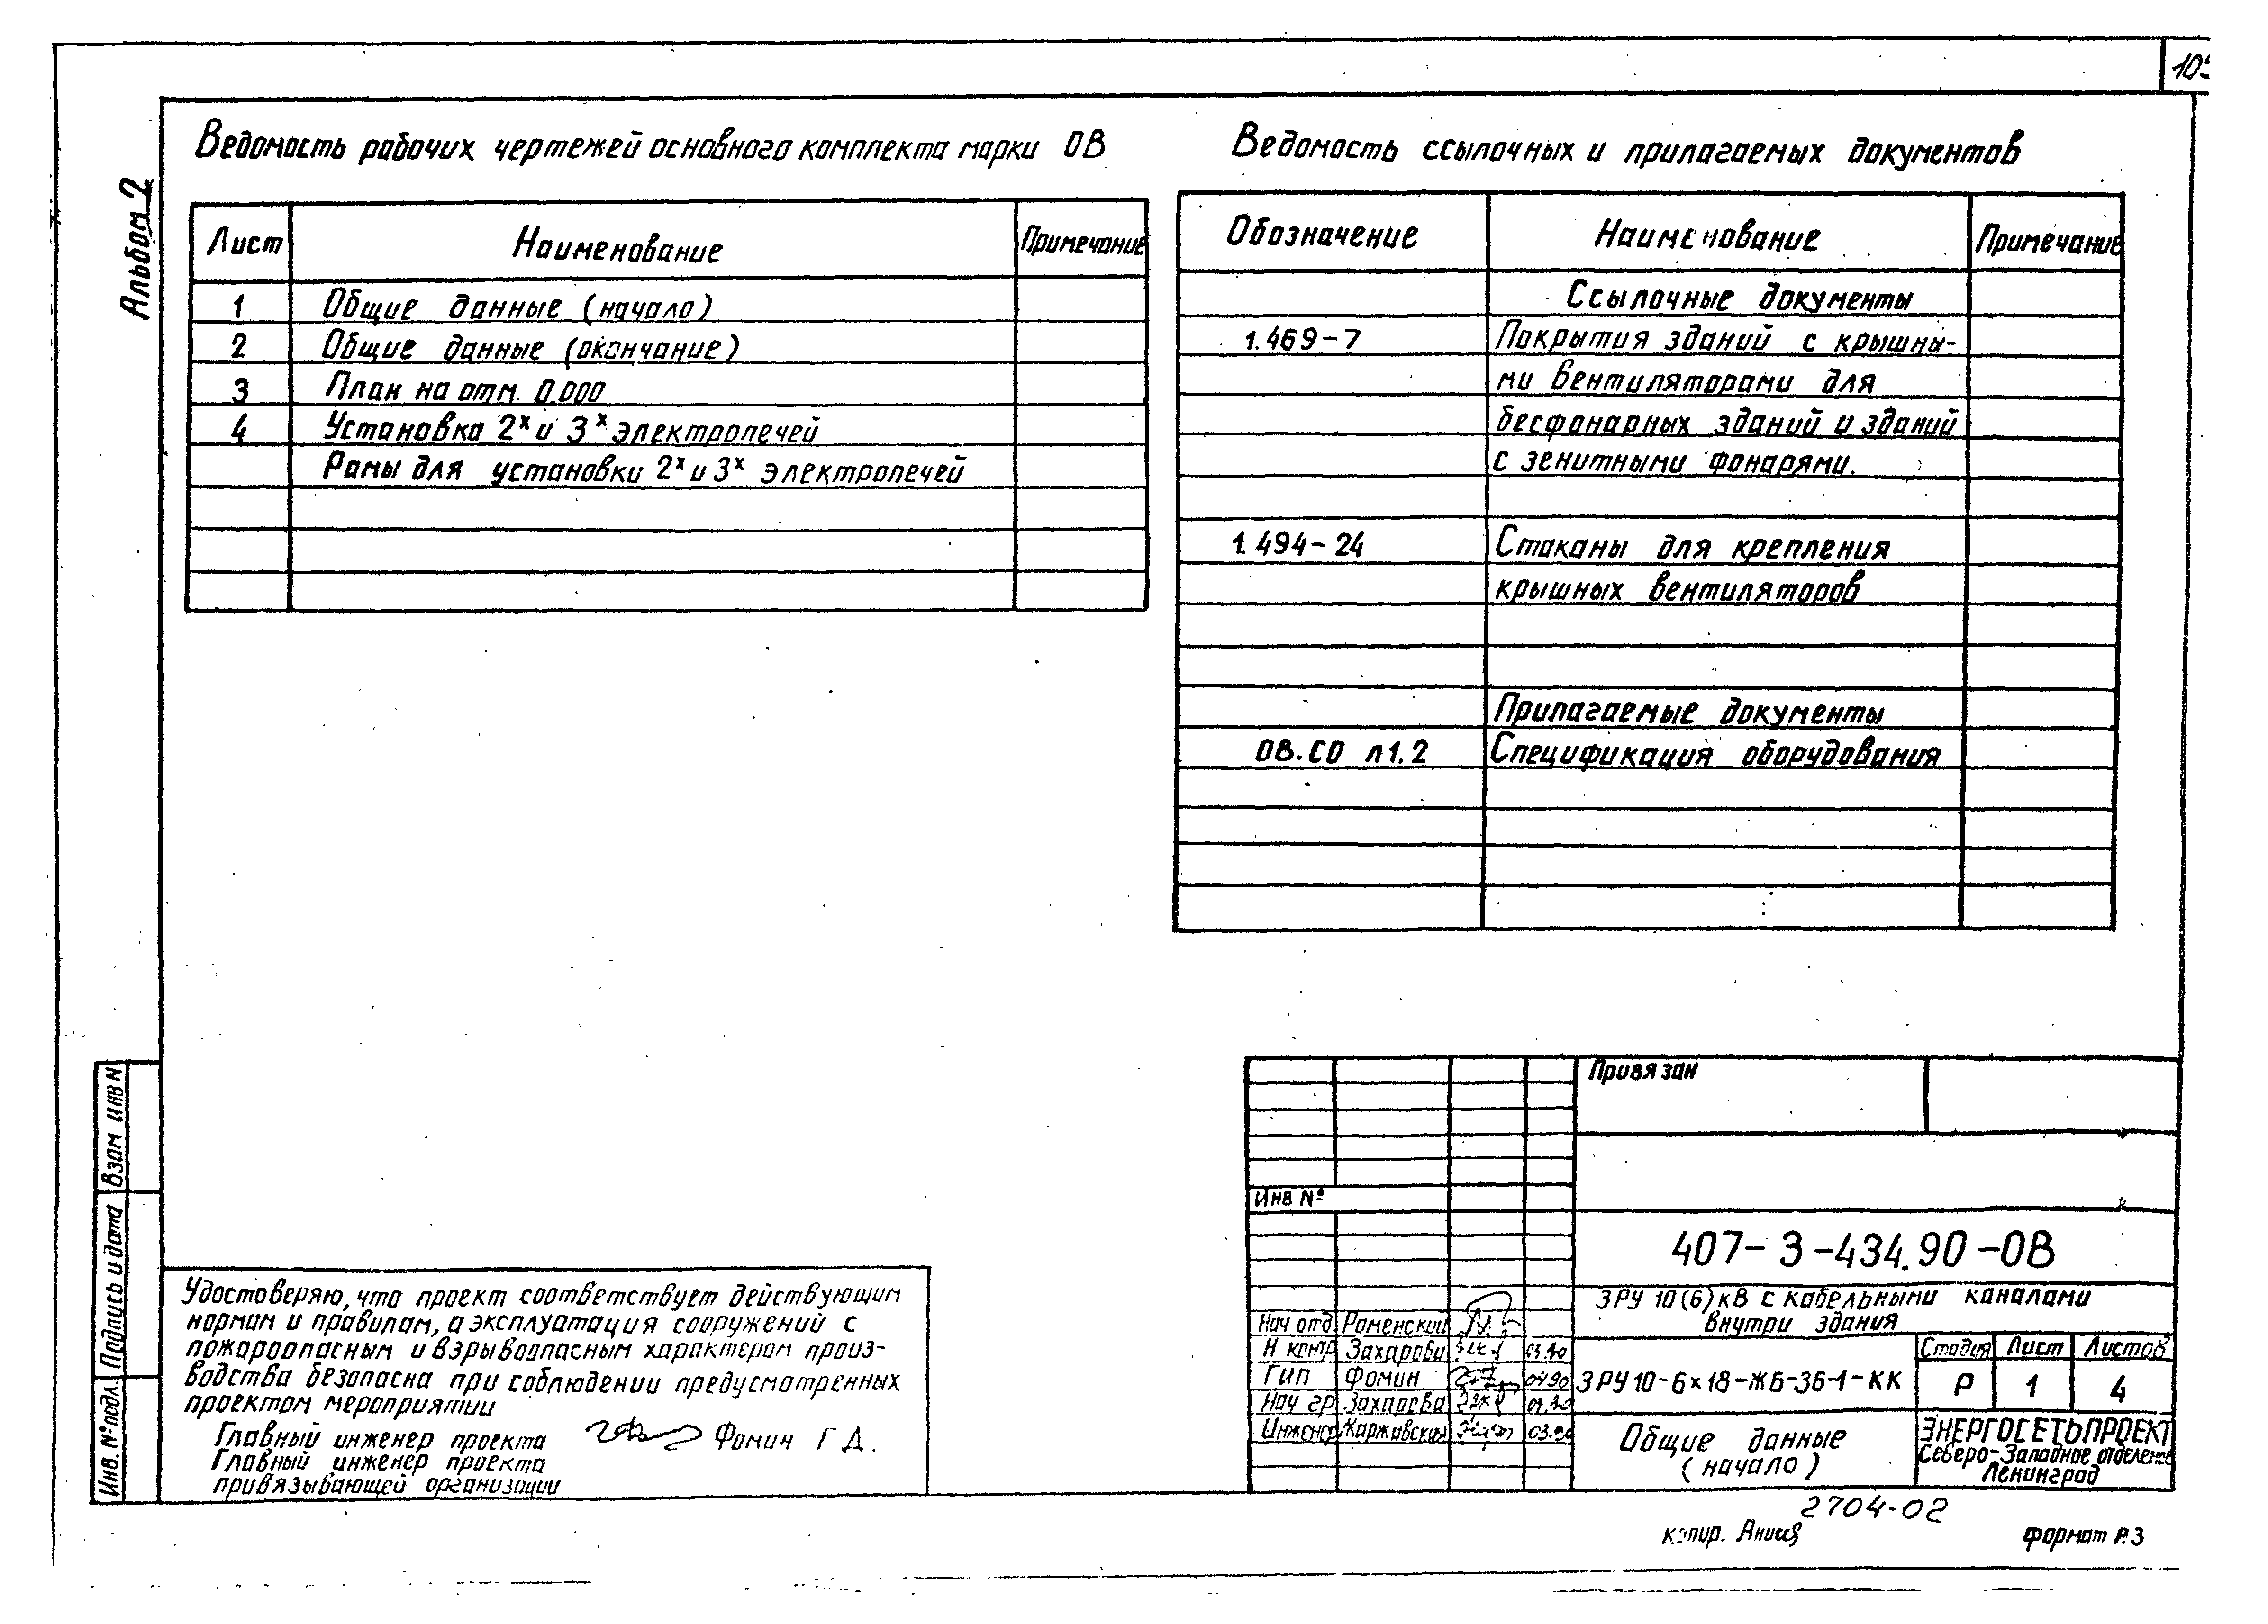 Альбом 2
Ведомость рабочих чертежей основного комплекта марки ОВ
Лист Наименование Примечание
1 Общие данные (начало)
2 Общие данные (окончание)
3 План на отм. 0.000
4 Установка 2х и 3х электропечей
Рамы для установки 2х и 3х электропечей
Ведомость ссылочных и прилагаемых документов
Обозначение Наименование Примечание
Ссылочные документы
1.469-7 Покрытия зданий с крышны-
ми вентиляторами для
бесфонарных зданий и зданий
с зенитными фонарями.
1.494-24 Стаканы для крепления
крышных вентиляторов
Прилагаемые документы
ОВ.СО л1.2 Спецификация оборудования
Взам инв N
Подпись и дата
Инв. № подл.
Удостоверяю, что проект соответствует действующим
нормам и правилам, а эксплуатация сооружений с
пожароопасным и взрывоопасным характером произ-
водства безопасна при соблюдении предусмотренных
проектом мероприятии
Главный инженер проекта Фомин Г Д.
Главный инженер проекта
привязывающей организации
Привязан
Инв №
407-3-434.90-ОВ
ЗРУ 10(6) кВ с кабельными каналами
внутри здания
Нач отд Роменский
Н контр Захарова 03.90
Гип Фомин 04.90
Нач гр Захарова
Инженер Каржавская
ЗРУ10-6х18-ЖБ-36-1-КК
Стадия Лист Листов
Р 1 4
Общие данные
(начало)
ЭНЕРГОСЕТЬПРОЕКТ
Северо-Западное отделение
Ленинград
2704-02
копир. формат А3